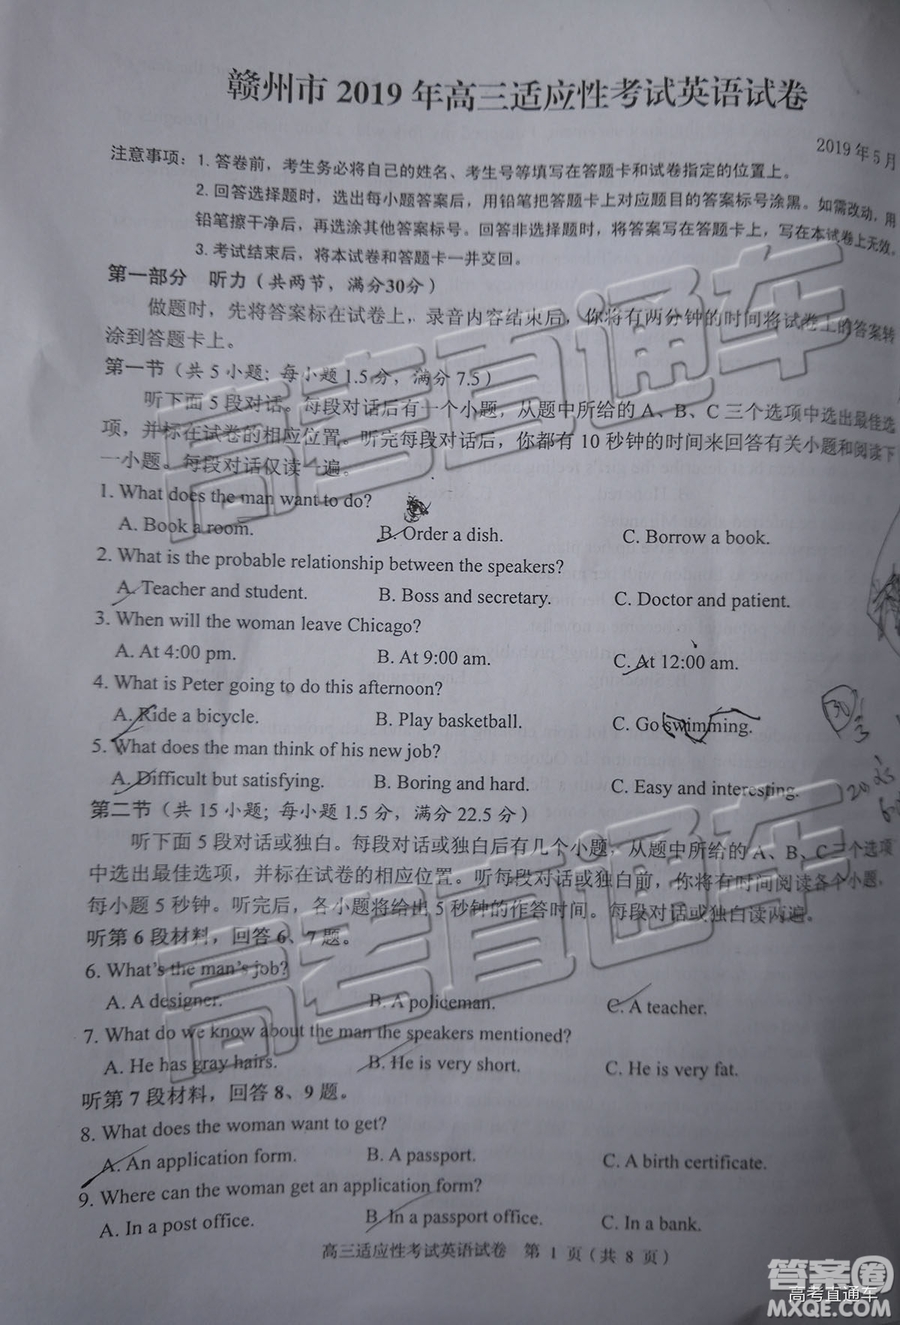 赣州市 2019 年高三适应性考试英语试卷
2019 年 5 月
注意事项：1. 答卷前，考生务必将自己的姓名、考生号等填写在答题卡和试卷指定的位置上。
2. 回答选择题时，选出每小题答案后，用铅笔把答题卡上对应题目的答案标号涂黑。如需改动，用
铅笔擦干净后，再选涂其他答案标号。回答非选择题时，将答案写在答题卡上，写在本试卷上无效。
3. 考试结束后，将本试卷和答题卡一并交回。
第一部分 听力（共两节，满分30分）
做题时，先将答案标在试卷上，录音内容结束后，你将有两分钟的时间将试卷上的答案转
涂到答题卡上。
第一节（共 5 小题；每小题 1.5 分，满分 7.5）
听下面 5 段对话。每段对话后有一个小题，从题中所给的 A、B、C 三个选项中选出最佳选
项，并标在试卷的相应位置。听完每段对话后，你都有 10 秒钟的时间来回答有关小题和阅读下
一小题。每段对话仅读一遍。
1. What does the man want to do?
A. Book a room. B. Order a dish. C. Borrow a book.
2. What is the probable relationship between the speakers?
A. Teacher and student. B. Boss and secretary. C. Doctor and patient.
3. When will the woman leave Chicago?
A. At 4:00 pm. B. At 9:00 am. C. At 12:00 am.
4. What is Peter going to do this afternoon?
A. Ride a bicycle. B. Play basketball. C. Go swimming.
30
5. What does the man think of his new job?
A. Difficult but satisfying. B. Boring and hard. C. Easy and interesting.
第二节（共 15 小题；每小题 1.5 分，满分 22.5 分）
听下面 5 段对话或独白。每段对话或独白后有几个小题，从题中所给的 A、B、C 三个选项
中选出最佳选项，并标在试卷的相应位置。听每段对话或独白前，你将有时间阅读各个小题，
每小题 5 秒钟。听完后，各小题将给出 5 秒钟的作答时间。每段对话或独白读两遍。
听第 6 段材料，回答 6、7 题。
6. What's the man's job?
A. A designer. B. A policeman. C. A teacher.
7. What do we know about the man the speakers mentioned?
A. He has gray hairs. B. He is very short. C. He is very fat.
听第 7 段材料，回答 8、9 题。
8. What does the woman want to get?
A. An application form. B. A passport. C. A birth certificate.
9. Where can the woman get an application form?
A. In a post office. B. In a passport office. C. In a bank.
高三适应性考试英语试卷 第 1 页（共 8 页）
高考直通车
高考直通车
答案圈
高考直通车
MXQE.COM